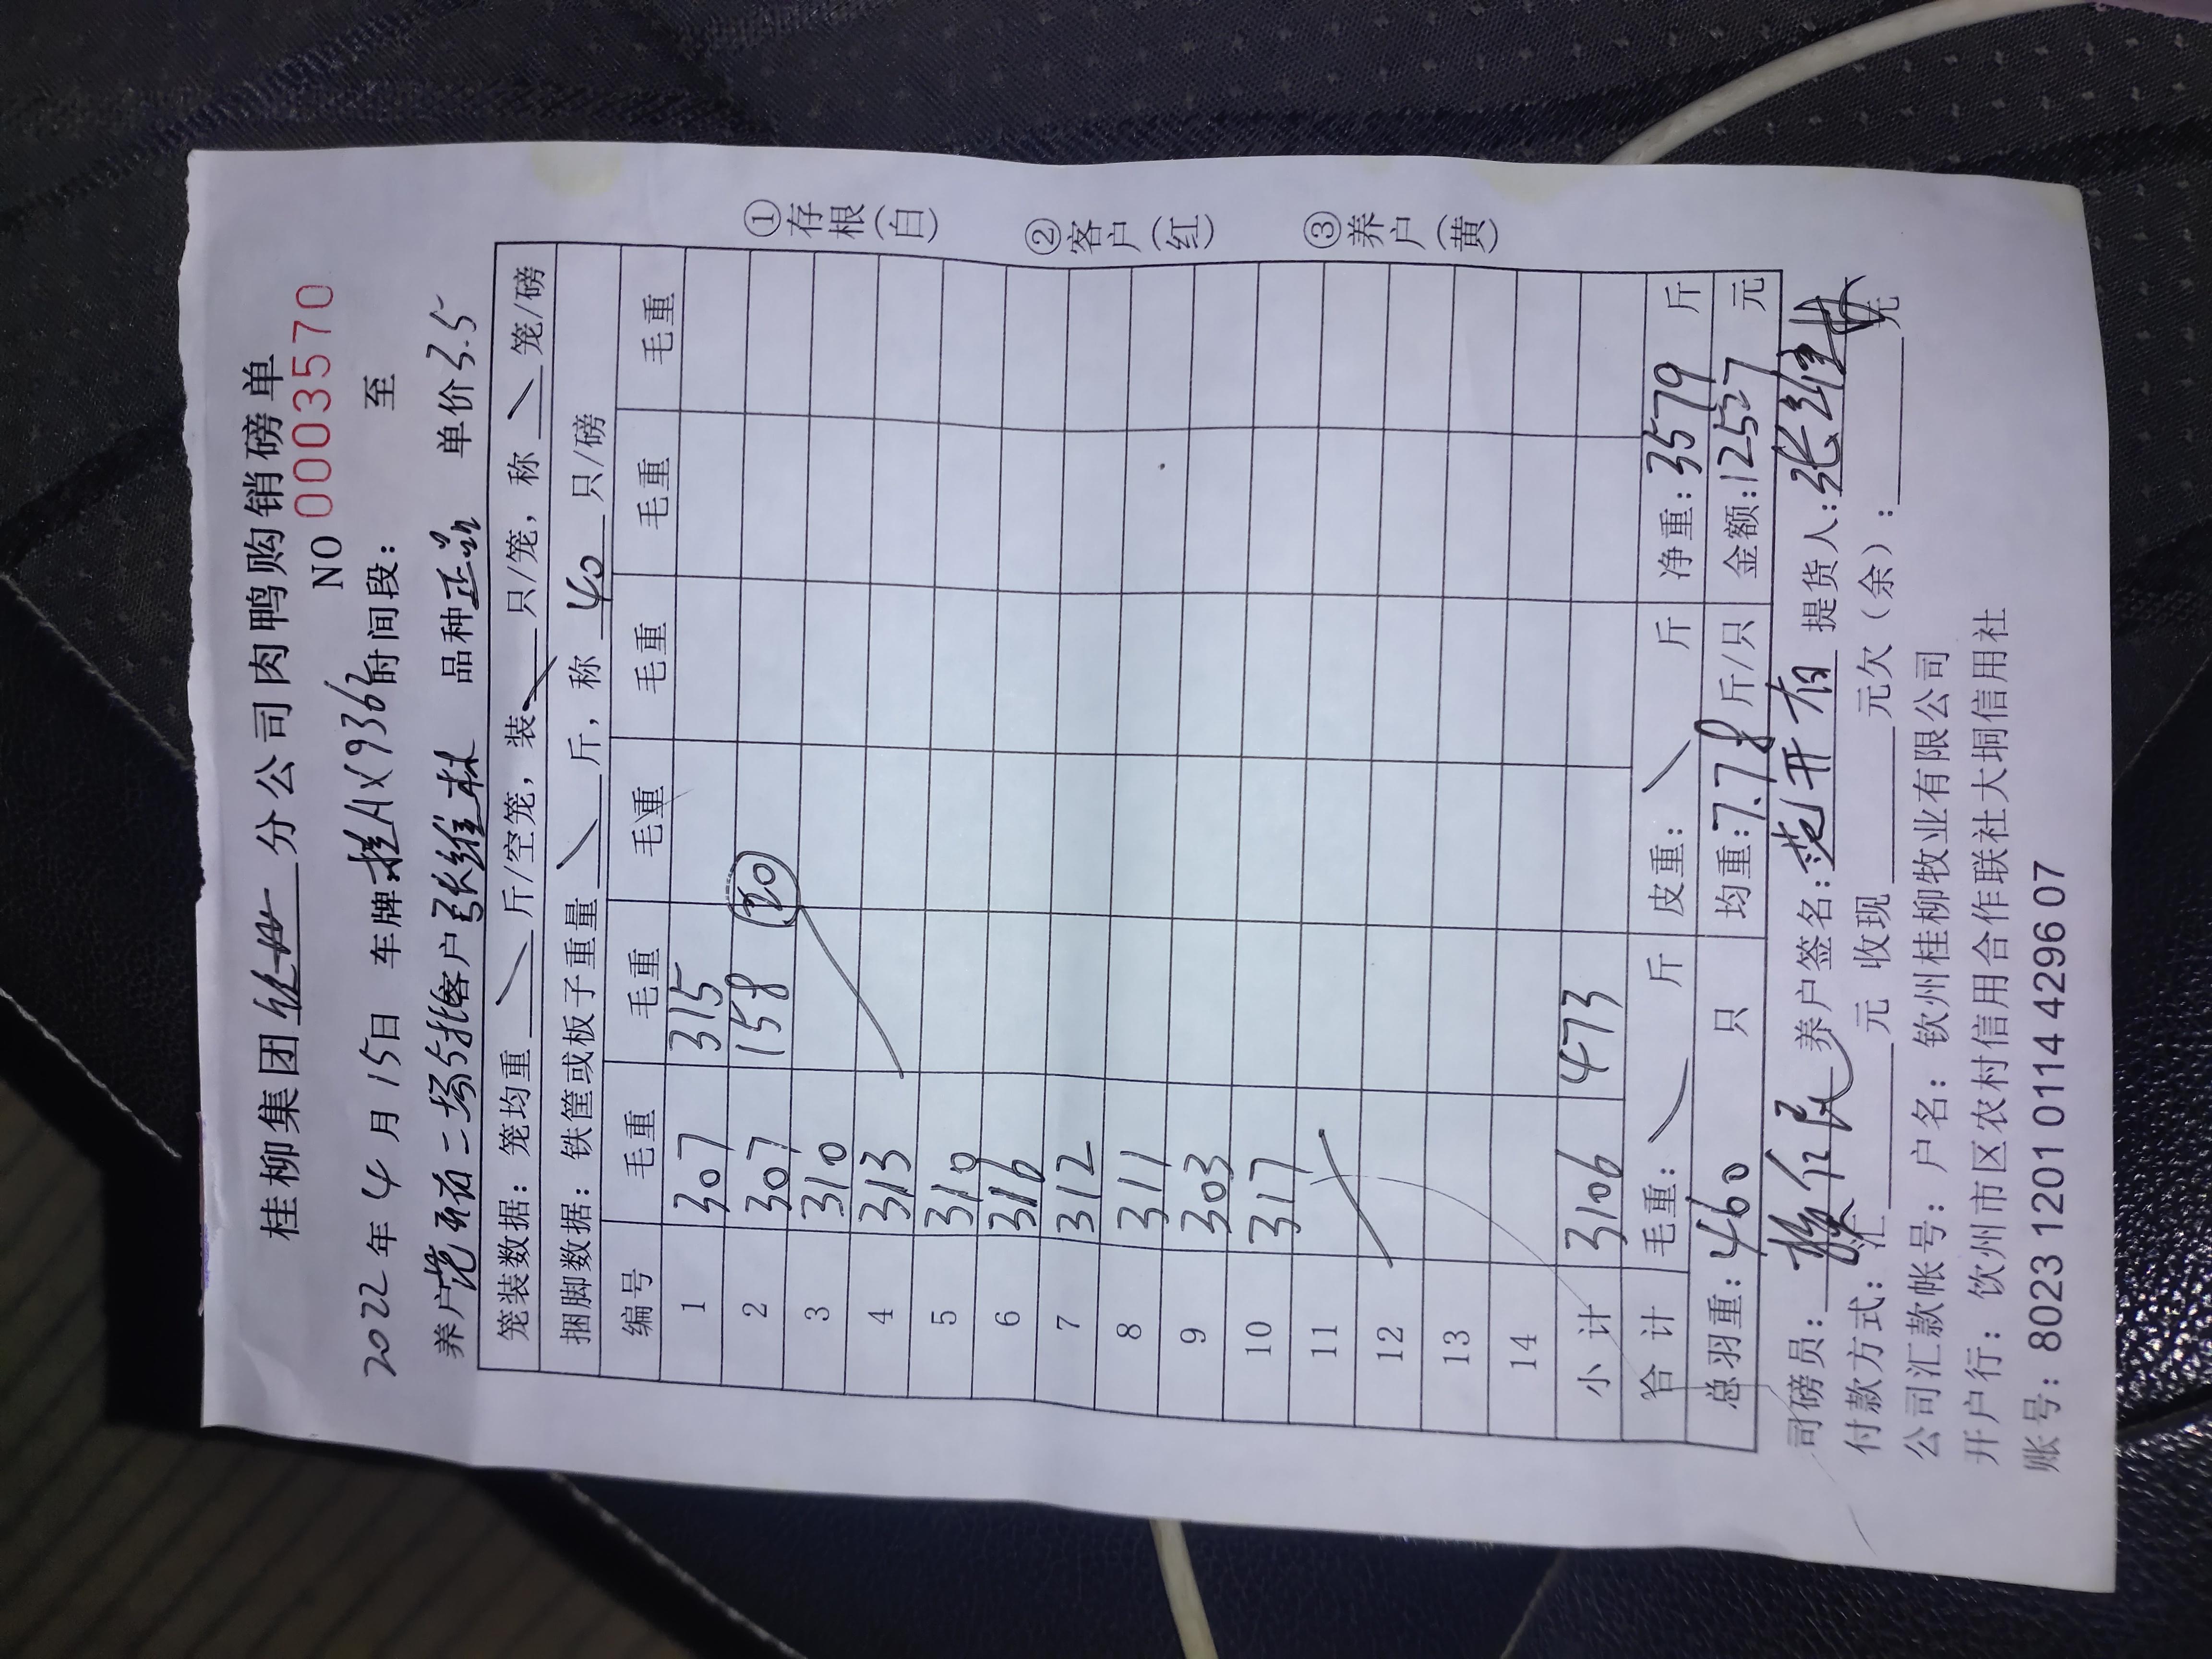 桂柳集团 分公司肉鸭购销磅单
NO 0003570
2022年4月15日 车牌:桂AX9362时间段: 至
养户范开有二场5批客户张维林 品种正品 单价3.5
笼装数据:笼均重 斤/空笼,装 只/笼,称 笼/磅
捆脚数据:铁筐或板子重量 斤,称 40 只/磅
编号 毛重 毛重 毛重 毛重 毛重 毛重
1 307 315
2 307 158 20
3 310
4 313
5 310
6 316
7 312
8 311
9 303
10 317
11
12
13
14
小计 3106 473
合计 毛重: 斤 皮重: 斤 净重:3579 斤
总羽重:460 只 均重:7.78斤/只 金额:12527元
司磅员: 养户签名:范开有 提货人:张维林
付款方式:汇 元 收现 元欠(余): 元
公司汇款帐号:户名:钦州桂柳牧业有限公司
开户行:钦州市区农村信用合作联社大垌信用社
账号:8023 1201 0114 4296 07
①存根(白)
②客户(红)
③养户(黄)